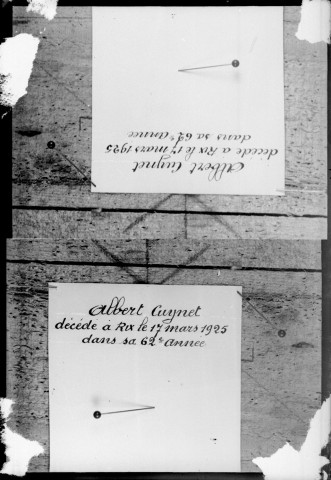 Albert Cuynet
décédé à Rix le 17 mars 1925
dans sa 62e année
Albert Cuynet
décédé à Rix le 17 mars 1925
dans sa 62e année